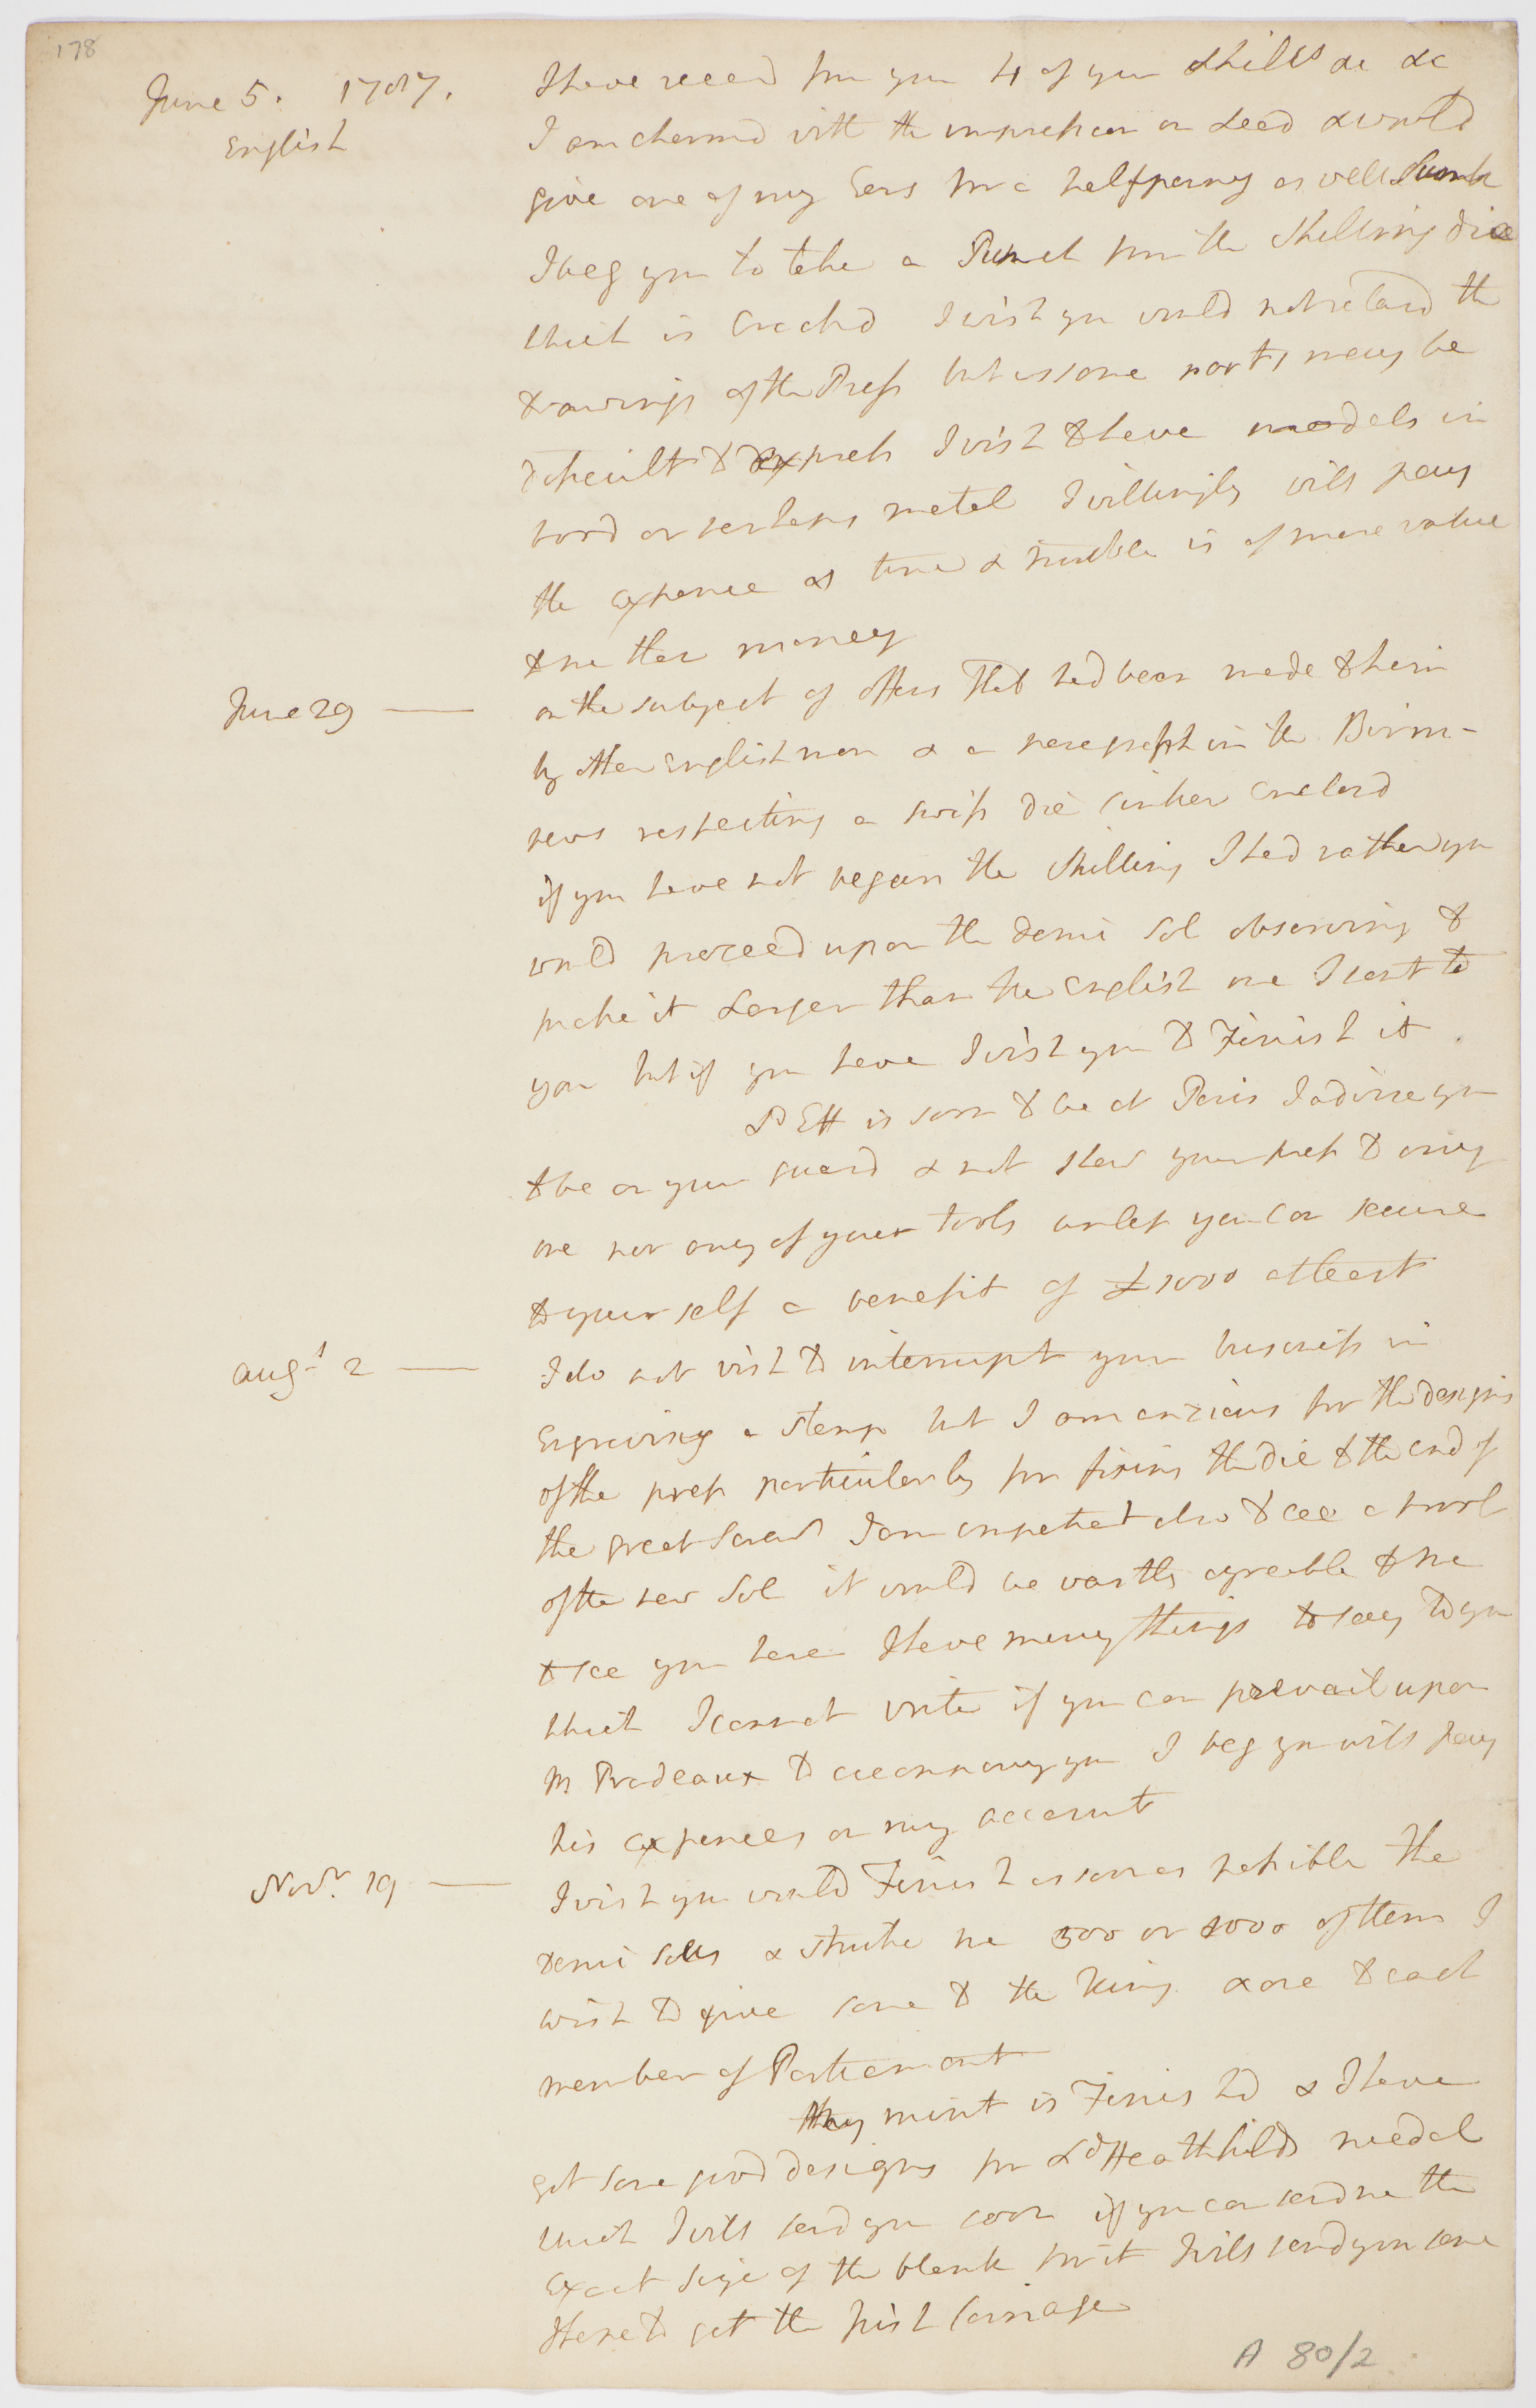 178
June 5. 1787.
English
I have recevd from you 4 of your Shills &c &c
I am charmed with the impression on Lead & would
give one of my Ears for a halfpenny as well Sunk
I beg you to take a Punch from the Shilling die
which is Crackd I wish you would not retard the
drawings of the Press but as some parts may be
difficult to express I wish to have models in
word or perhaps metal I willingly will pay
the expence as time & trouble is of more value
to me than money
June 29 — on the subject of offers that had been made to him
by other Englishmen & a paragraph in the Birm-
news respecting a swiss die sinker
if you have not began the Shilling I had rather you
would proceed upon the demi Sol observing to
make it Larger than the English one I sent to
you but if you have I wish you to Finish it.
P Ett is soon to be at Paris I advise you
to be on your guard & not shew your press to any
one nor any of your tools unless you can secure
to yourself a benefit of £1000 at least
Augt 2 — I do not wish to interrupt your business in
Engraving a stamp but I am anxious for the designs
of the press particularly for fixing the die to the end of
the great Screw I am impatient also to see a proof
of the new Sol it would be vastly agreeable to me
to see you here I have many things to say to you
which I cannot write if you can prevail upon
M Pradeaux to accompany you I beg you will pay
his expences on my account
Novr. 19 — I wish you would Finish as soon as possible the
demi Solls & strike me 500 or 1000 of them I
wish to give some to the King & one to each
member of Parliament
My mint is Finishd & I have
got some good designs for Ld Heathfields medal
which I will send you soon if you can send me the
Exact size of the blank for it I will send you some
I hope to get the first
A 80/2